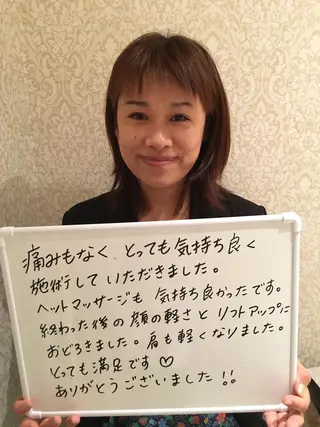 痛みもなく、とっても気持ち良く
施術していただきました。
ヘットマッサージも気持ち良かったです。
終わった後の顔の軽さとリフトアップに
おどろきました。肩も軽くなりました。
とっても満足です♡
ありがとうございました!!